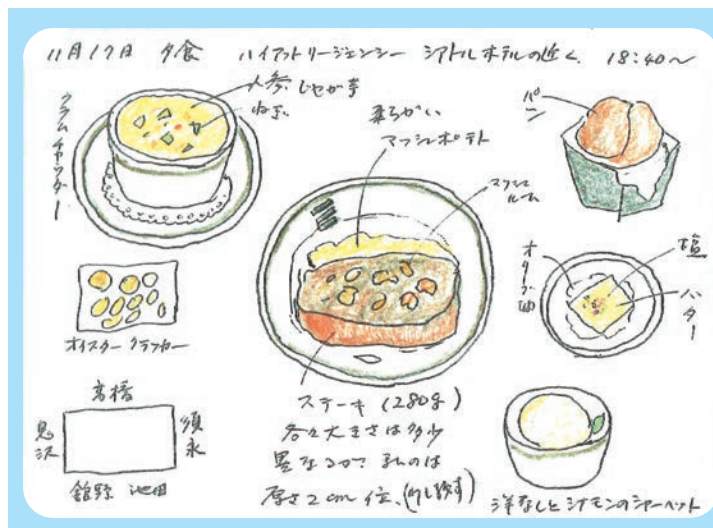 11月17日 夕食 ハイアットリージェンシー シアトルホテルの近く. 18:40〜
クラムチャウダー
人参 じゃが芋
ねぎ
柔らかい
マッシュポテト
マッシュ
ルーム
パン
オリーブ油
塩
バター
オイスター クラッカー
高橋
見沢
須永
舘野 池田
ステーキ (280g)
各々大きさは多少
異なるが 私のは
厚さ2cm位、(少し残す)
洋なしとシナモンのシャーベット